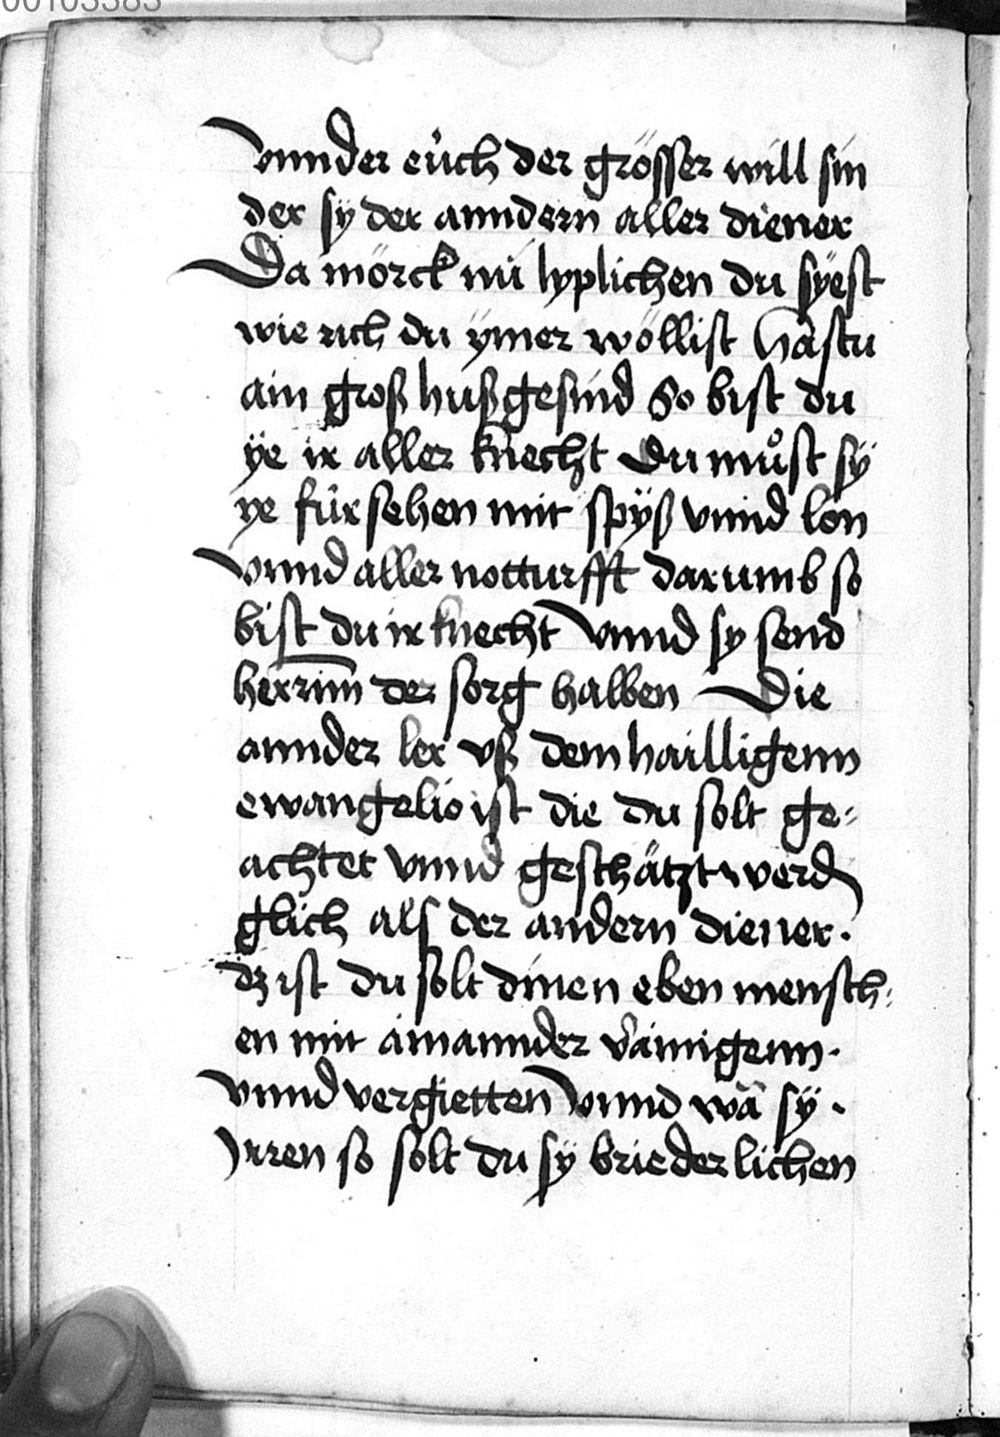 00103383
vnnder eüch der grösser will sin
der sy der anndern aller diener
Da mörck nü lyplichen du syest
wie rich du ÿmer wöllist hastu
ain groß hußgesind So bist du
ÿe ir aller knecht Du muͦst sÿ
ye fürsehen mit spÿß vnnd lon
vnnd aller notturfft darumb so
bist du ir knecht Vnnd sy send
herrinn der sorg halben Die
annder ler vß dem hailligenn
ewangelio ist die du solt ge-
achtet vnnd geschätzt werd
glich als der andern diener.
dz ist du solt dinen eben mensch-
en mit ainannder verainigenn.
vnnd vergietten Vnnd wa sÿ.
Irren so solt du sÿ briederlichen